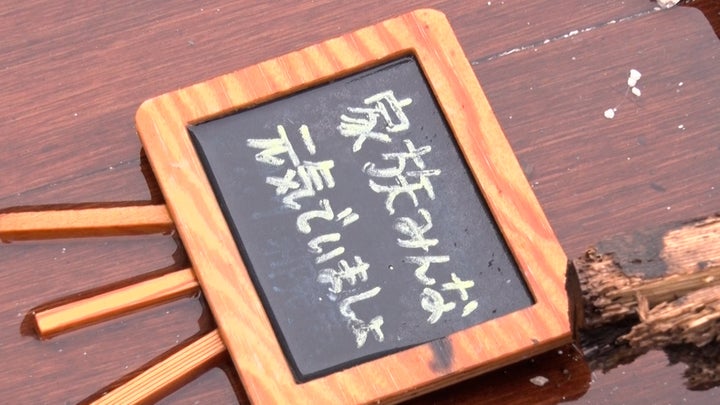 家族みんな
元気でいましょ